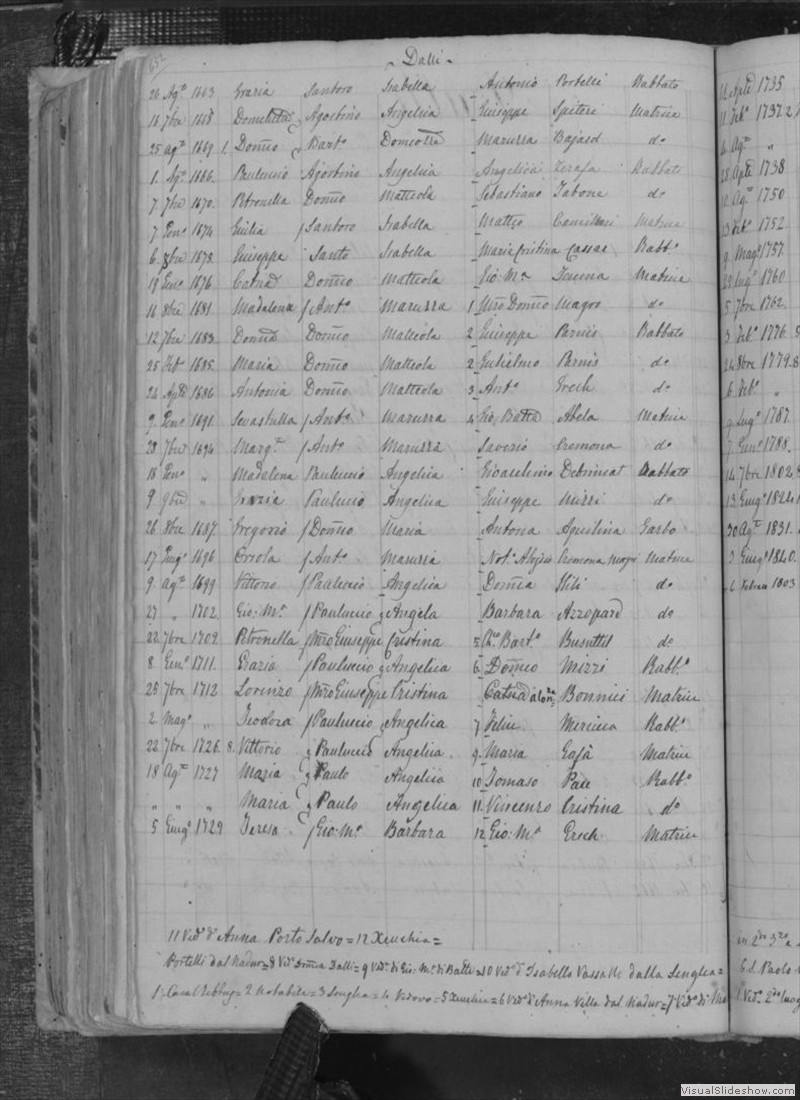 652
Dalli
26 Agto 1663 Grazia Santoro Isabella Antonio Portelli Rabbato
16 7bre 1668 Agostino Angelica Giuseppe Spiteri Matrice
25 agto 1669 1. Domco Barto Maruzza Bajard do
1. Agto 1666. Pauluccio Agostino Angelica Angelica Xerafa Rabbato
7 7bre 1670. Petronella Domco Matteola Sebastiano Tabone do
7 Geno 1674 Giulia Santoro Isabella Matteo Camilleri Matrice
6. 8bre 1675. Giuseppe Santo Isabella Maria Cristina Cassar Rabbo
19 Geno 1676 Catna Domco Matteola Gio: Ma Matrice
16 8bre 1681 Madalena Anto Maruzza 1 Mro Domco Magro do
12 7bre 1683 Domca Domco Matteola 2 Giuseppe Parnis Rabbato
25 Feb 1685. Maria Domco Matteola 2 Gulielmo Parnis do
24 Aple 1686 Antonia Domco Matteola 3 Anto Grech do
9 Geno 1691. Sevastulla Anto Maruzza 4 Gio: Batta Abela Matrice
28 7bre 1694 Margta Anto Maruzza Saverio Cremona do
18 Geno „ Madalena Pauluccio Angelica Gioachino Debrincat Rabbato
9 9bre „ Grazia Pauluccio Angelica Giuseppe Mizzi do
26 8bre 1687. Gregorio Domco Maria Antona Aquilina Garbo
17 Giugo 1696 Orsola Anto Maruzza Noto Aloisio Cremona Matrice
9. agto 1699 Vittorio Pauluccio Angelica Domca Hili do
27 „ 1702. Gio: Ma Pauluccio Angela Barbara Azzopard do
22 7bre 1709. Petronella Mro Giuseppe Cristina 5 Barto Busuttil do
8 Geno 1711. Grazia Pauluccio Angelica 6 Domco Mizzi Rabbo
25 7bre 1712 Lorenzo Mro Giuseppe Cristina Bonnici Matrice
2 Mago „ Teodora Pauluccio Angelica 7 Felice Mercieca Rabbo
22 7bre 1726. 8. Vittorio Pauluccio Angelica 9 Maria Gafà Matrice
18 Agto 1727 Maria Paulo Angelica 10 Tomaso Pace Rabbo
„ „ „ Maria Paulo Angelica 11 Vincenzo Cristina do
5 Giugo 1729 Teresa Gio: Ma Barbara 12 Gio: Ma Grech Matrice
11 Vedo d'Anna Porto Salvo = 12 Xeuchia =
Portelli dal Nadur = 8 Vedo Domca Dalli = 9 Veda di Gio: Ma di = 10 Vedo d'Isabella Vassallo dalla Senglea =
1. Casal Zebbug = 2 Notabile = 3 Senglea = 4 Vedovo = 5 Xeuchia = 6 Vedo d'Anna Vella dal Nadur = 7 Vedo di
Aple 1735
11 Febo 1737. 2
Agto „
28 Aple 1738
Agto 1750
Febo 1752
9 Mago 1757.
Lugo 1760
5 7bre 1762.
3 Febo 1776.
24 8bre 1779.
6 Febo „
9 Lugo 1787.
7 Geno 1788.
14 7bre 1802
13 Giugo 1824
30 Agto 1831.
3 Giugo 1840.
6 Febraro 1803
S. Paolo
VisualSlideshow.com